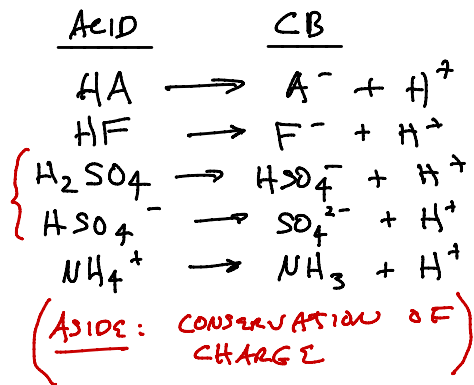 ACID CB
HA → A⁻ + H⁺
HF → F⁻ + H⁺
H₂SO₄ → HSO₄⁻ + H⁺
HSO₄⁻ → SO₄²⁻ + H⁺
NH₄⁺ → NH₃ + H⁺
(ASIDE: CONSERVATION OF
CHARGE)